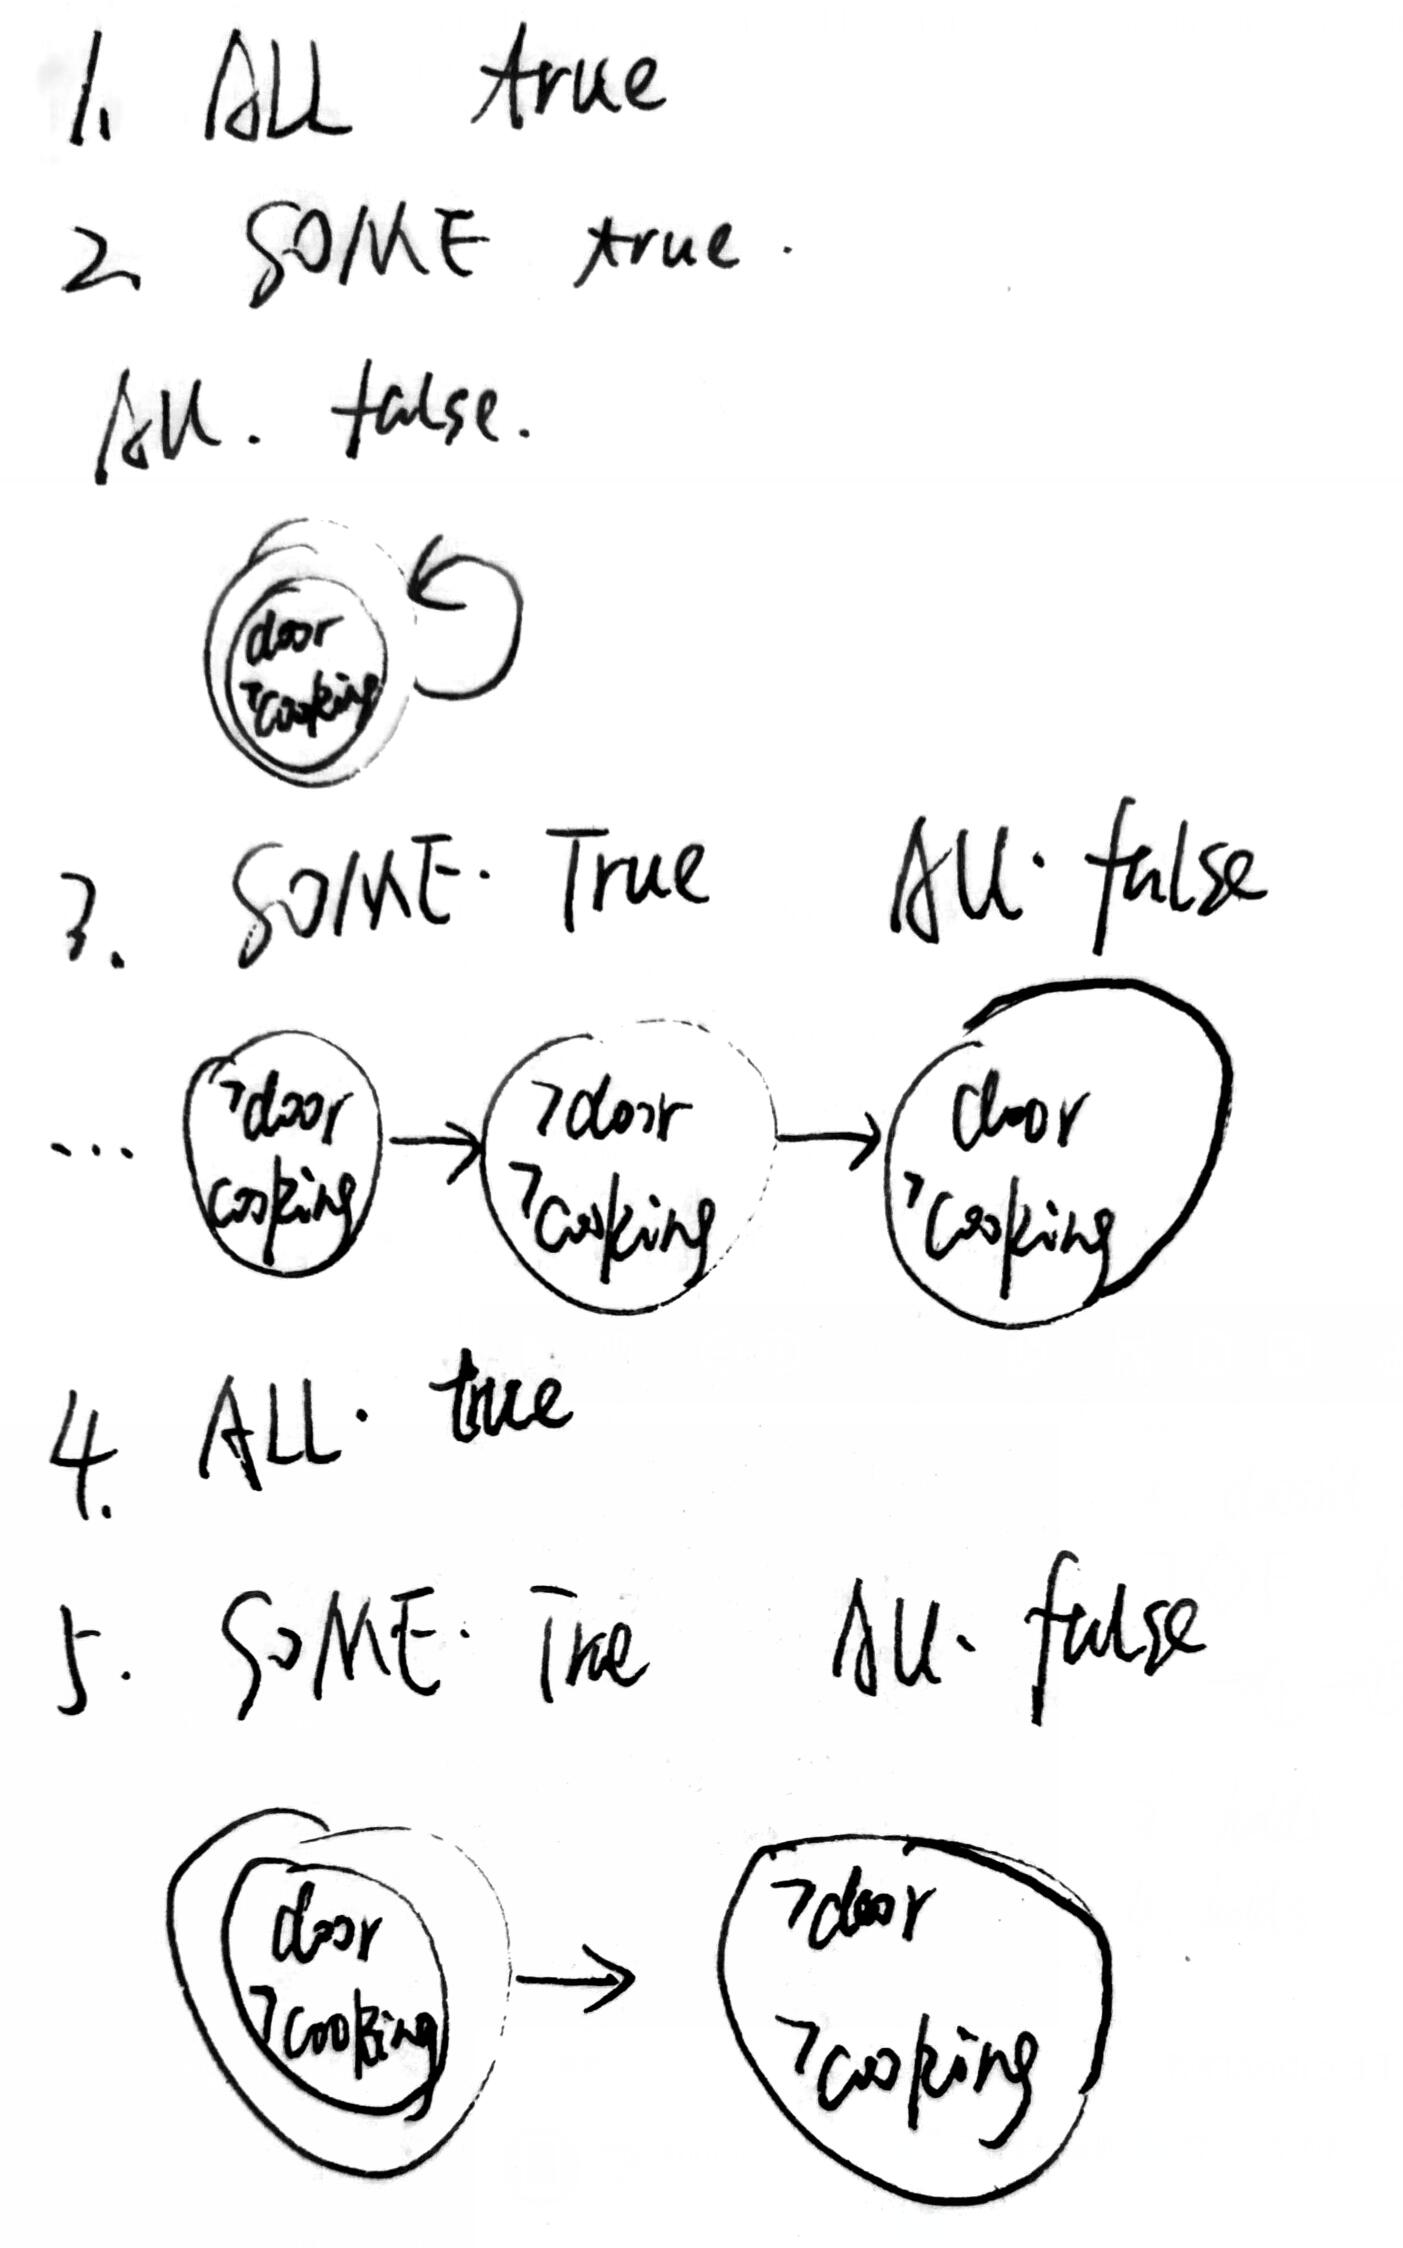 1. ALL true
2. SOME true.
All. false.
door
¬cooking
3. SOME. True All. false
... ¬door ¬door door
cooking ¬cooking ¬cooking
4. ALL. true
5. SOME. True All. false
door ¬door
¬cooking ¬cooking